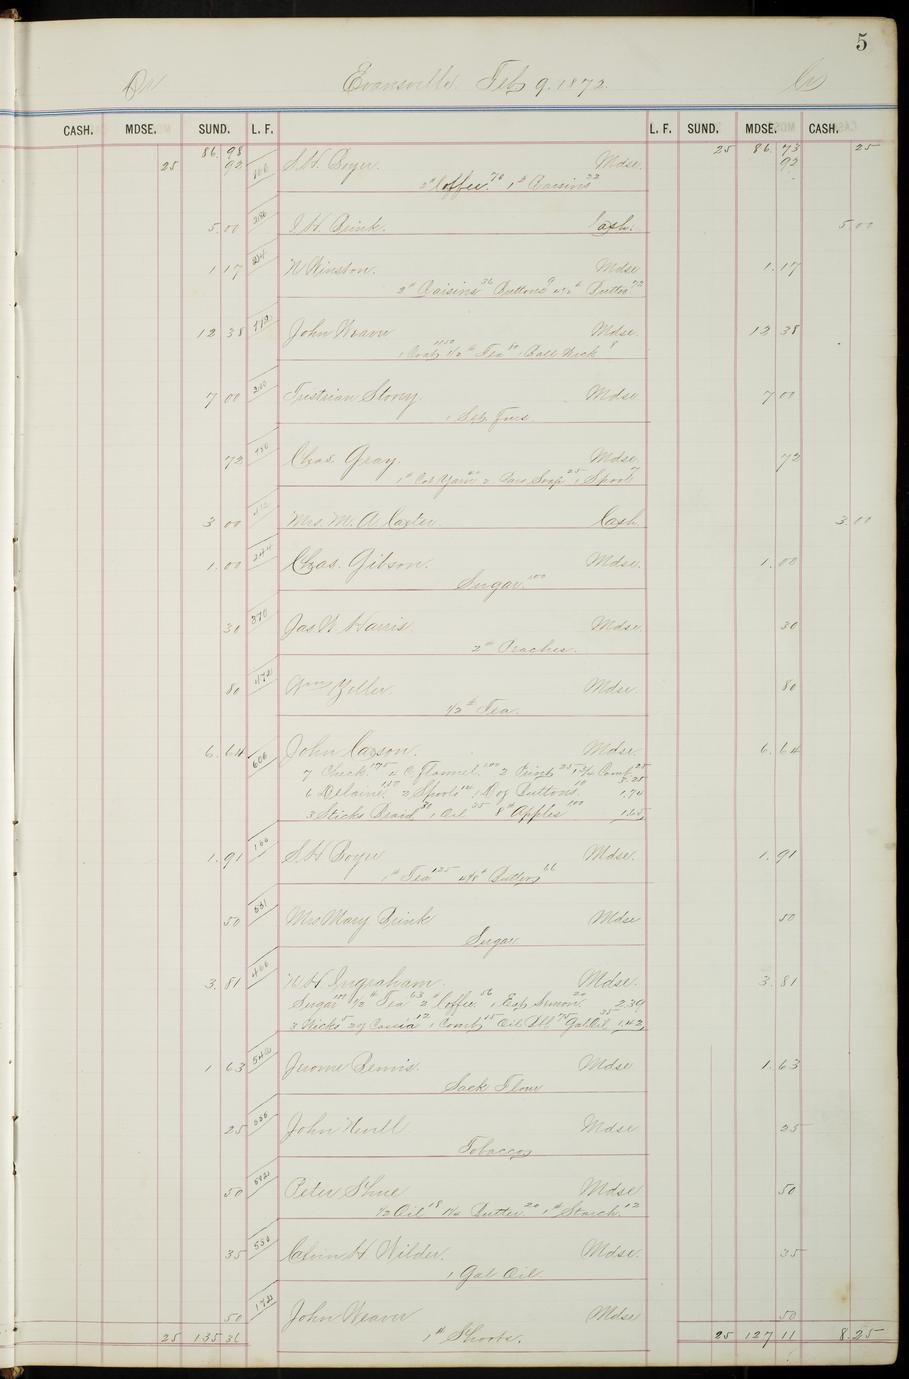 5
Dr Evansville Feb 9. 1872. Cr
CASH. MDSE. SUND. L. F. L. F. SUND. MDSE. CASH.
86.98 25 86.73 25
25 92 166 S. H. Boyer. Mdse. 92
2# Coffee 70 1# Raisins 22
5.00 J H. Brink. Cash. 5.00
1.17 Winston. Mdse 1.17
2# Raisins 36 Buttons 9 Butter 72
12 38 John Weaver Mdse. 12 38
1/2# Tea 80 1 Ball Wick 8
7 00 Story Mdse 7 00
72 Chas. Gray. Mdse. 72
1# Yarn 2 Bars Soap 25 1 Spool 7
3 00 Mrs. M. A. Cash 3.00
1.00 244 Chas. Gibson. Mdse. 1.00
Sugar. 100
30 370 Jas Harris. Mdse. 30
2# Peaches.
80 472 Wm Zeller. Mdse. 80
1/2# Tea.
6.64 606 John Carson. Mdse. 6.64
7 Check 175 4 C Flannel. 100 2 Prints 25 Comb 25 3.25
6 Delaine. 150 2 Spools 14 1 Doz Buttons. 10 1.74
3 Sticks Braid 30 1 Oil 35 8# Apples 100 1.65
1.91 166 S. H Boyer Mdse. 1.91
1# Tea 125 Butter 66
50 531 Mrs. Mary Brink Mdse 50
Sugar
3.81 466 H. Ingraham. Mdse. 3.81
Sugar 100 1/2# Tea 63 2# Coffee 56 1 Ext Lemon. 20 2.39
3 Wicks 5 Cassia 12 1 Comb 15 Oil 75 Gal Oil 35 1.42
1 63 Jerome Bemis. Mdse 1.63
Sack Flour
25 John Nevill Mdse 25
Tobacco
50 Peter Shue Mdse 50
1/2 Oil 18 Butter 20 1# Starch. 12
35 H Wilder. Mdse. 35
1 Gal Oil
50 174 John Weaver Mdse 50
25 135 36 1# Shorts. 25 127 11 8.25